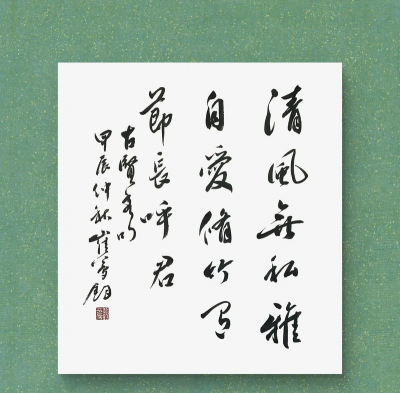 清風無私雅
自愛脩竹有
節長呼君
古賢句
甲辰仲秋崔